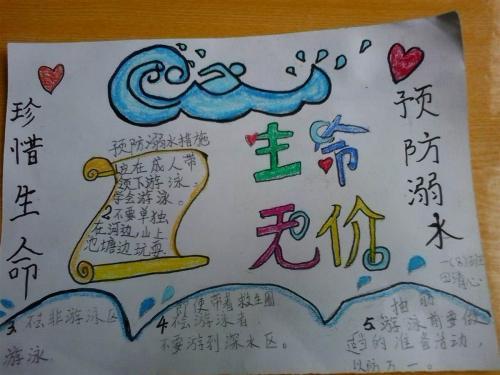 珍惜生命
预防溺水措施
1应在成人带
领下游泳。
学会游泳。
2不要单独
在河边,山上
池塘边玩耍
生命
无价
预防溺水
一(8)班
3 不去非游泳区
游泳
4 即使带着救生圈
不要游到深水区。
5 游泳前要做
适当的准备活动,
以防万一。